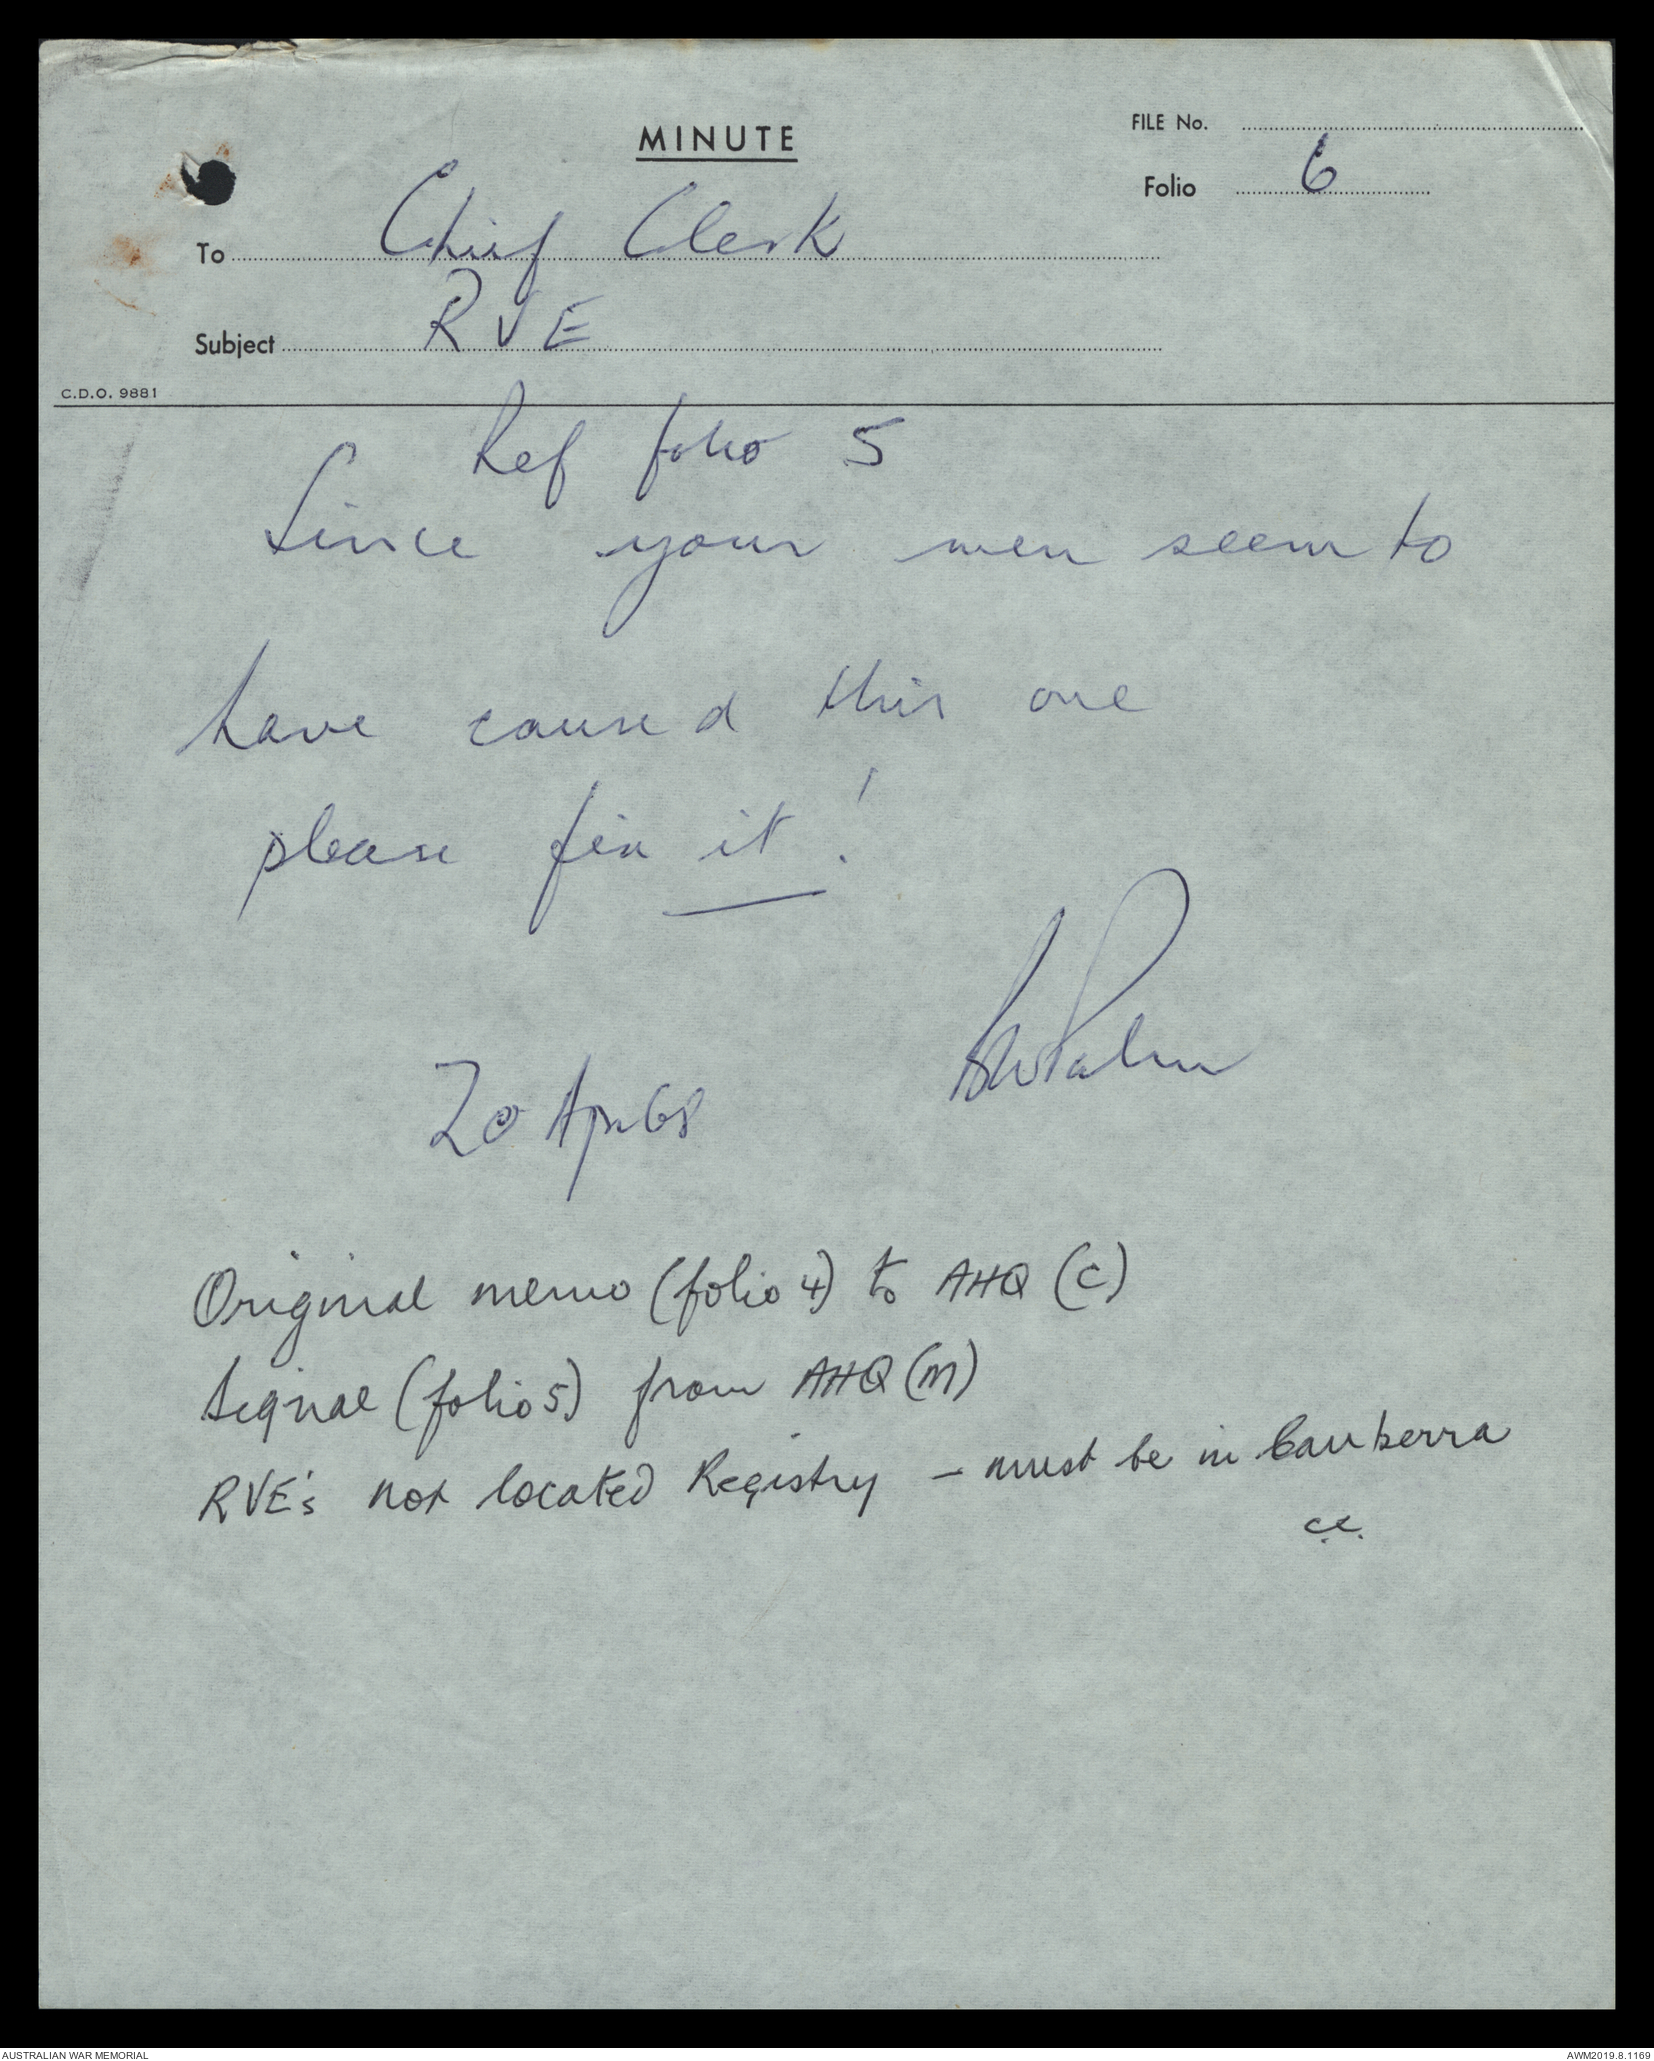 MINUTE
FILE No.
Folio 6
To Chief Clerk
Subject RVE
C.D.O. 9881
Ref folio 5
Since your men seem to
have caused this one
please fix it!
20 Apr 68
Original memo (folio 4) to AHQ (C)
Signal (folio 5) from AHQ (M)
RVE's not located Registry - must be in Canberra
c.c.
AUSTRALIAN WAR MEMORIAL
AWM2019.8.1169